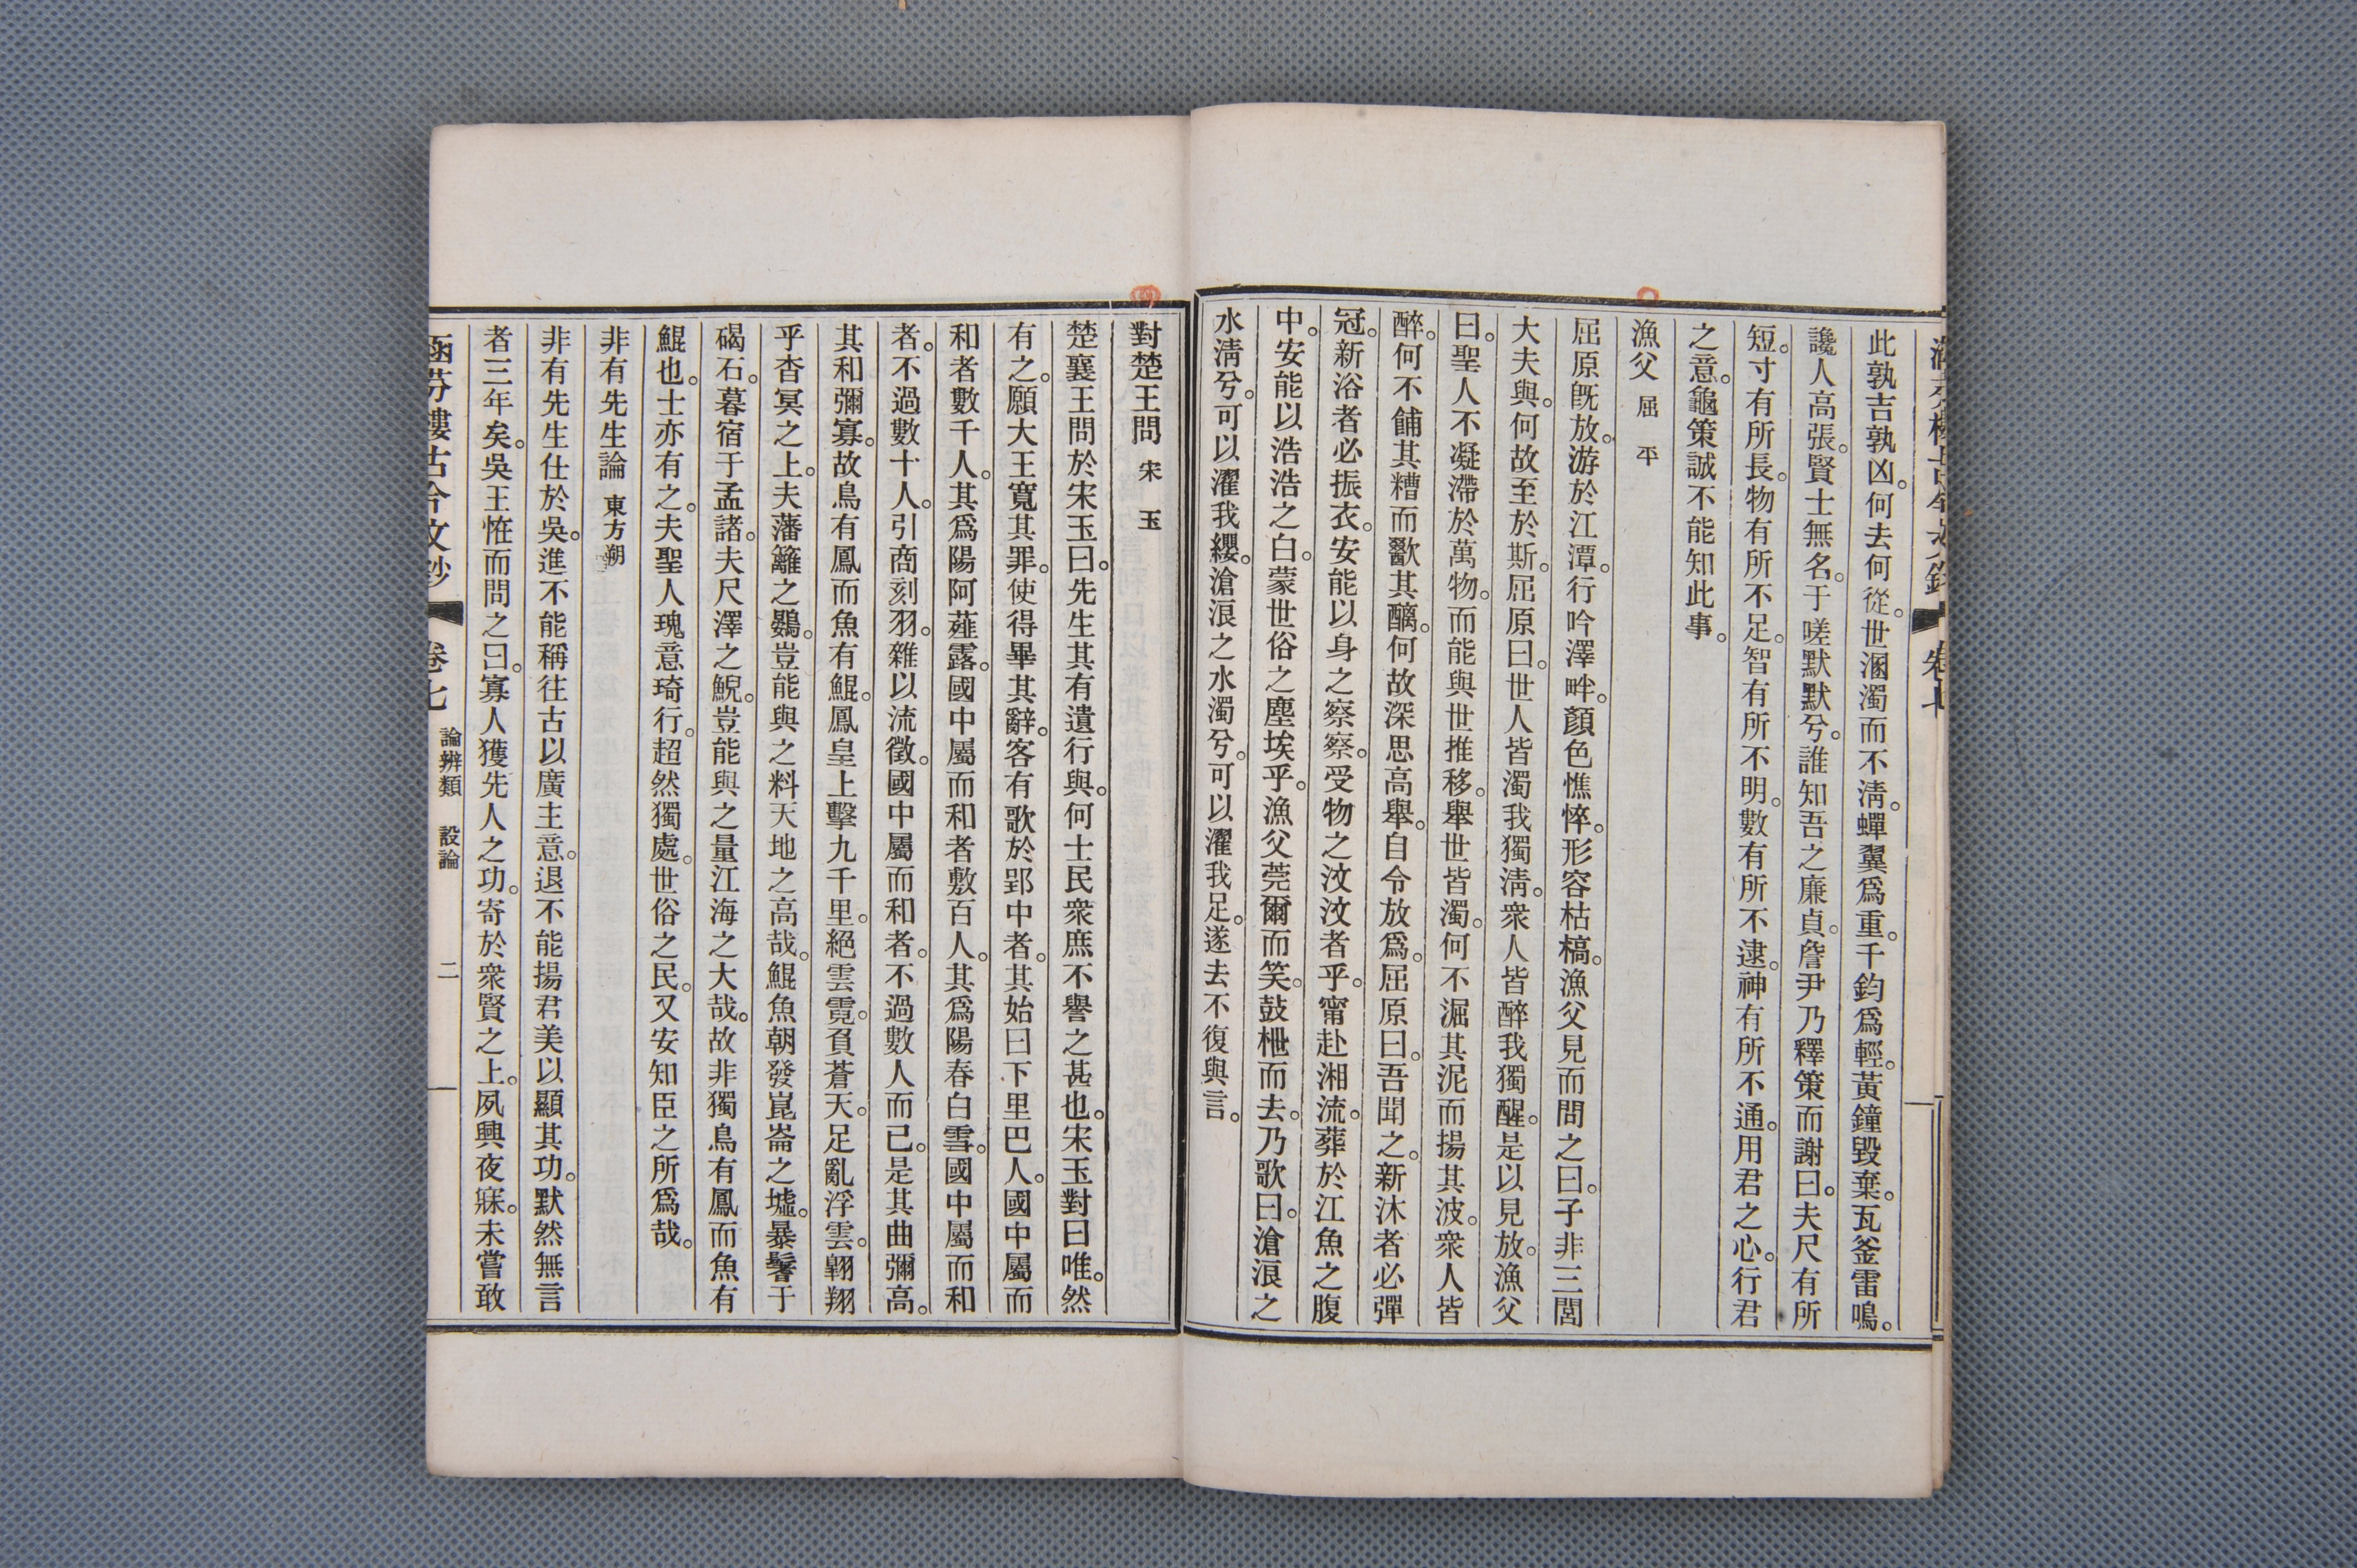 此孰吉孰凶。何去何從。世溷濁而不淸。蟬翼爲重。千鈞爲輕。黃鐘毀棄。瓦釜雷鳴。
讒人高張。賢士無名。于嗟默默兮。誰知吾之廉貞。詹尹乃釋策而謝曰。夫尺有所
短。寸有所長。物有所不足。智有所不明。數有所不逮。神有所不通。用君之心。行君
之意。龜策誠不能知此事。
漁父 屈 平
屈原旣放。游於江潭。行吟澤畔。顏色憔悴。形容枯槁。漁父見而問之曰。子非三閭
大夫與。何故至於斯。屈原曰。世人皆濁我獨淸。衆人皆醉我獨醒。是以見放。漁父
曰。聖人不凝滯於萬物。而能與世推移。舉世皆濁。何不淈其泥而揚其波。衆人皆
醉。何不餔其糟而歠其醨。何故深思高舉。自令放爲。屈原曰。吾聞之。新沐者必彈
冠。新浴者必振衣。安能以身之察察。受物之汶汶者乎。甯赴湘流。葬於江魚之腹
中。安能以浩浩之白。蒙世俗之塵埃乎。漁父莞爾而笑。鼓枻而去。乃歌曰。滄浪之
水淸兮。可以濯我纓。滄浪之水濁兮。可以濯我足。遂去不復與言。
對楚王問 宋 玉
楚襄王問於宋玉曰。先生其有遺行與。何士民衆庶不譽之甚也。宋玉對曰唯。然
有之。願大王寬其罪。使得畢其辭。客有歌於郢中者。其始曰下里巴人。國中屬而
和者數千人。其爲陽阿薤露。國中屬而和者數百人。其爲陽春白雪。國中屬而和
者。不過數十人。引商刻羽。雜以流徵。國中屬而和者。不過數人而已。是其曲彌高。
其和彌寡。故鳥有鳳而魚有鯤。鳳皇上擊九千里。絕雲霓。負蒼天。足亂浮雲。翺翔
乎杳冥之上。夫藩籬之鷃。豈能與之料天地之高哉。鯤魚朝發崑崙之墟。暴鬐于
碣石。暮宿于孟諸。夫尺澤之鯢。豈能與之量江海之大哉。故非獨鳥有鳳而魚有
鯤也。士亦有之。夫聖人瑰意琦行。超然獨處。世俗之民。又安知臣之所爲哉。
非有先生論 東方朔
非有先生仕於吳。進不能稱往古以廣主意。退不能揚君美以顯其功。默然無言
者三年矣。吳王怪而問之曰。寡人獲先人之功。寄於衆賢之上。夙興夜寐。未嘗敢
涵芬樓古今文鈔 卷七 論辨類 設論 二